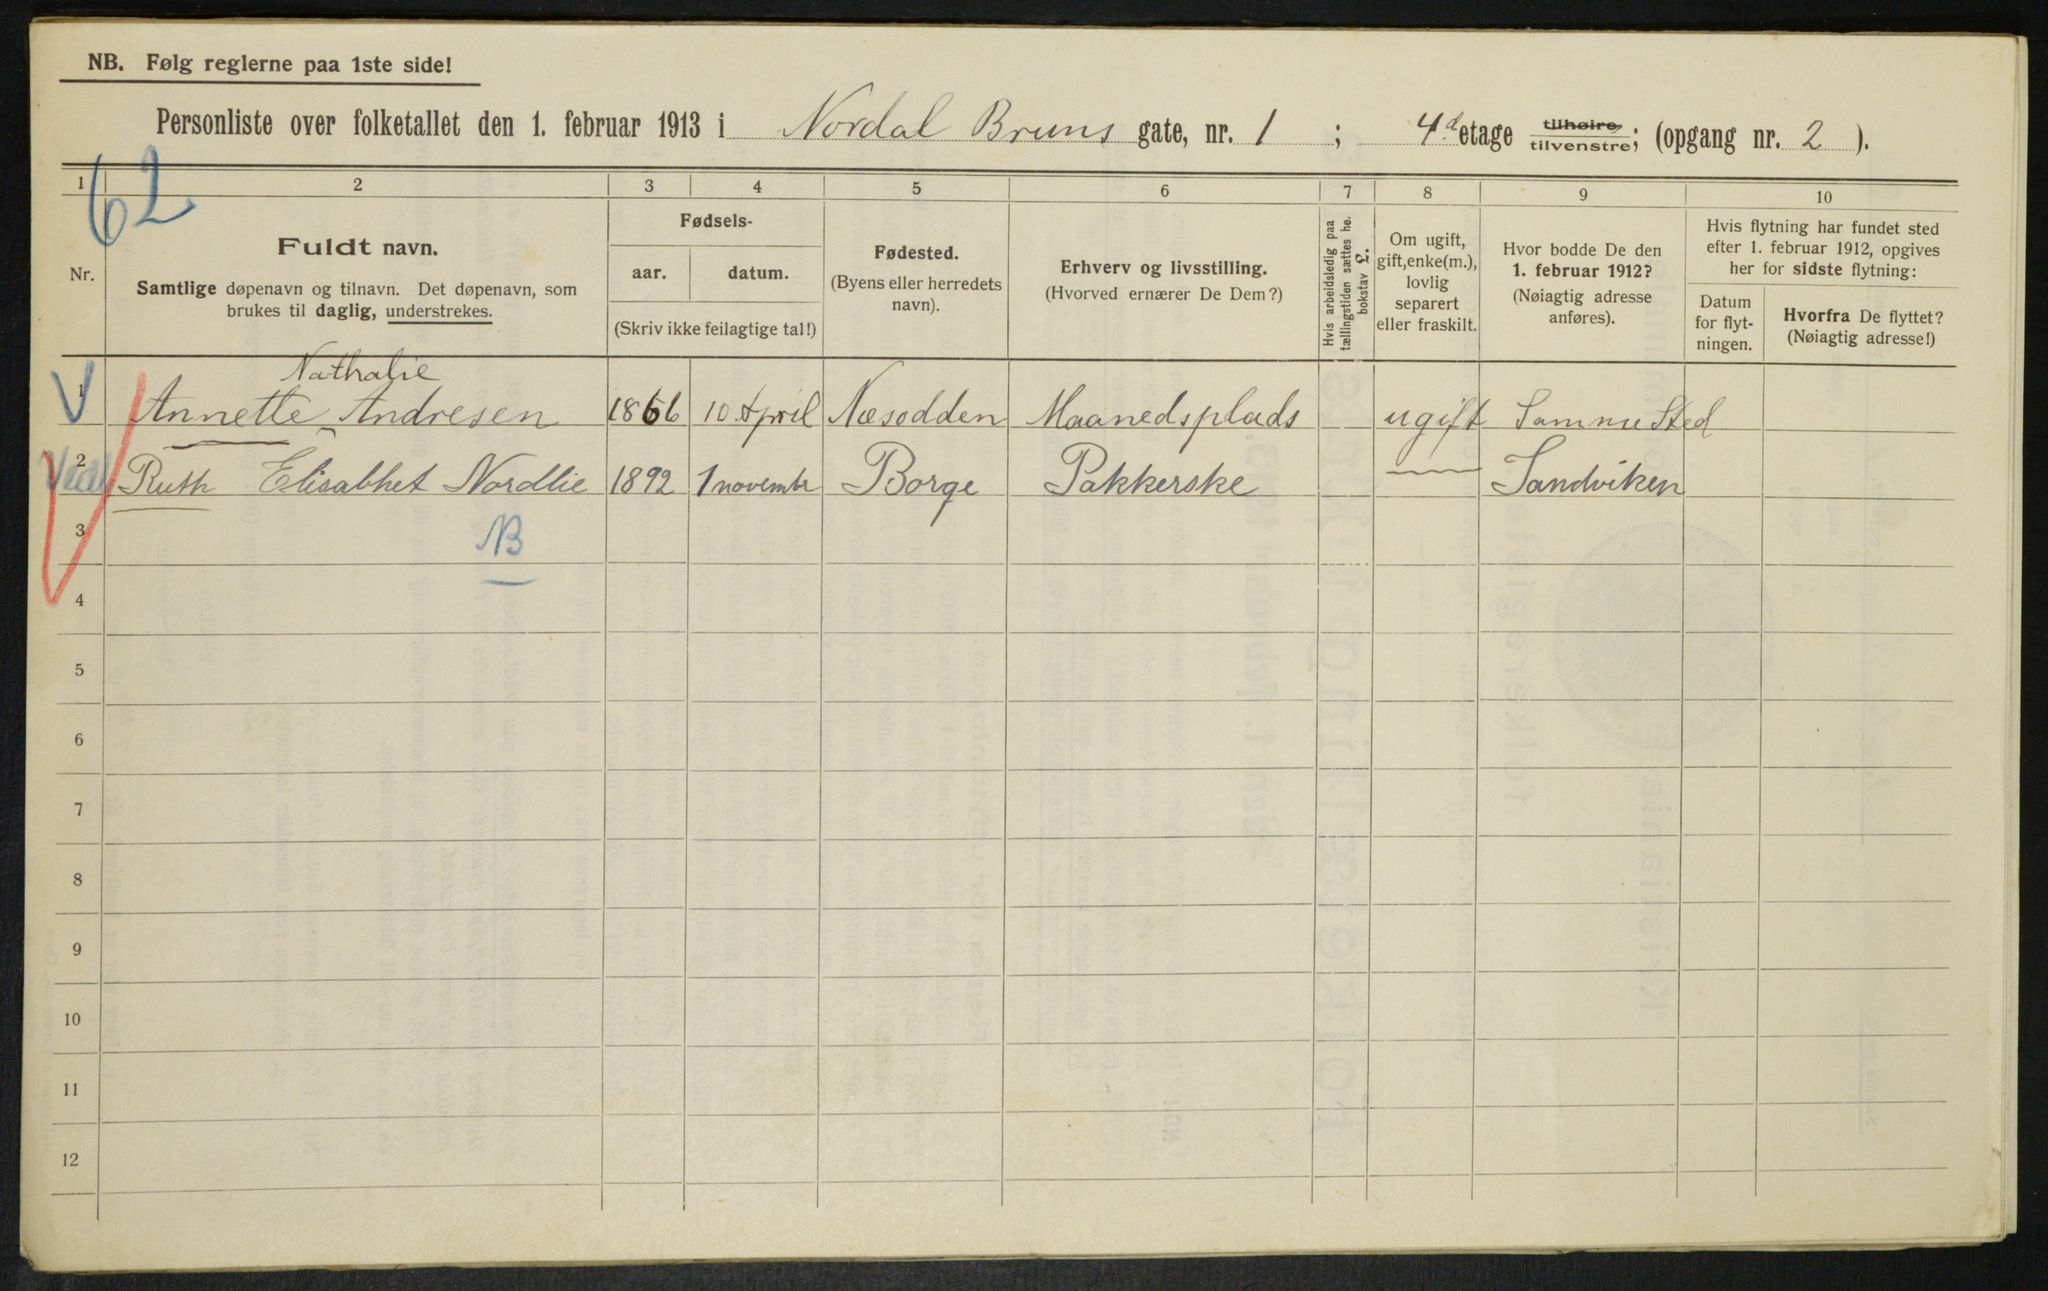 NB. Følg reglerne paa 1ste side!
Personliste over folketallet den 1. februar 1913 i Nordal Bruns gate, nr. 1 ; 4d etage tilhøire/tilvenstre; (opgang nr. 2 ).
1 2 3 4 5 6 7 8 9 10
62
Nr.
Fuldt navn.
Samtlige døpenavn og tilnavn. Det døpenavn, som
brukes til daglig, understrekes.
Fødsels-
aar. datum.
(Skriv ikke feilagtige tal!)
Fødested.
(Byens eller herredets
navn).
Erhverv og livsstilling.
(Hvorved ernærer De Dem?)
Hvis arbeidsledig paa
tællingstiden sættes he.
bokstav L.
Om ugift,
gift, enke(m.),
lovlig
separert
eller fraskilt.
Hvor bodde De den
1. februar 1912?
(Nøiagtig adresse
anføres).
Hvis flytning har fundet sted
efter 1. februar 1912, opgives
her for sidste flytning:
Datum
for flyt-
ningen.
Hvorfra De flyttet?
(Nøiagtig adresse!)
Nathalie
1 Annette Andresen 1866 10 April Næsodden Maanedsplads ugift Samme Sted
2 Ruth Elisabhet Nordlie 1892 1 novembr Borge Pakkerske — Sandviken
3
NB
4
5
6
7
8
9
10
11
12